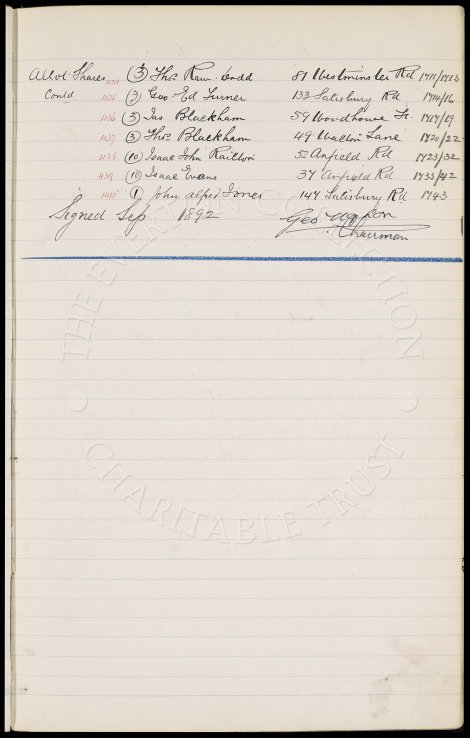 Allot Shares 434 (3) Thos Raw dodd 81 Westminster Rd 1711/1713
Contd 435 (3) Geo Ed Turner 132 Salisbury Rd 1714/16
436 (3) Jas Blackham 59 Woodhouse St 1717/19
437 (3) Thos Blackham 49 Walton Lane 1720/22
438 (10) Isaac John Railton 52 Anfield Rd 1723/32
439 (10) Isaac Evans 37 Anfield Rd 1733/42
440 (1) John Alfred Jones 147 Salisbury Rd 1743
Signed Sep 1892 Geo Mahon
Chairman
THE EVERTON COLLECTION
CHARITABLE TRUST